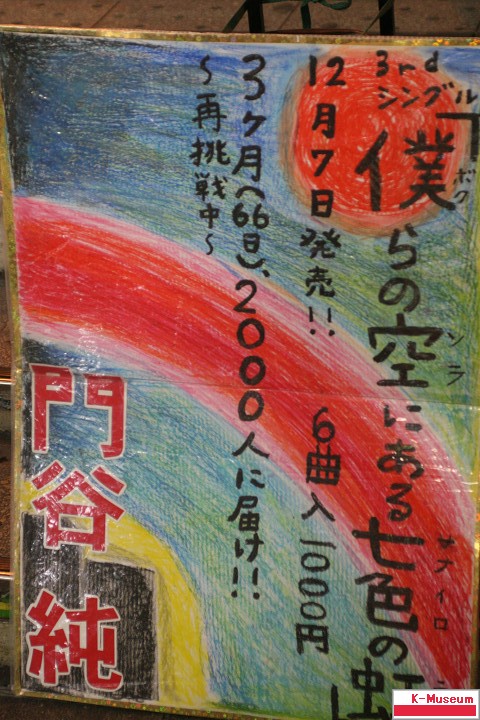 3rd
シングル
「僕らの空にある七色の虹」
ボク
ソラ
ナナイロ
12月7日発売!!
6曲入 1000円
3ヶ月(66日)、2000人に届け!!
～再挑戦中～
門谷 純
K-Museum